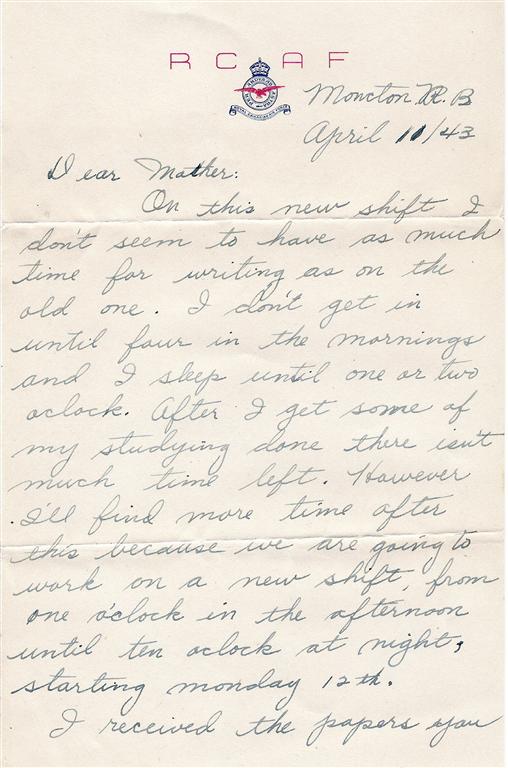 R C A F
Moncton N.B
April 11/43
Dear Mother:
On this new shift I
don't seem to have as much
time for writing as on the
old one. I don't get in
until four in the mornings
and I sleep until one or two
oclock. After I get some of
my studying done there isn't
much time left. However
I'll find more time after
this because we are going to
work on a new shift, from
one o'clock in the afternoon
until ten oclock at night,
starting monday 12th.
I received the papers you